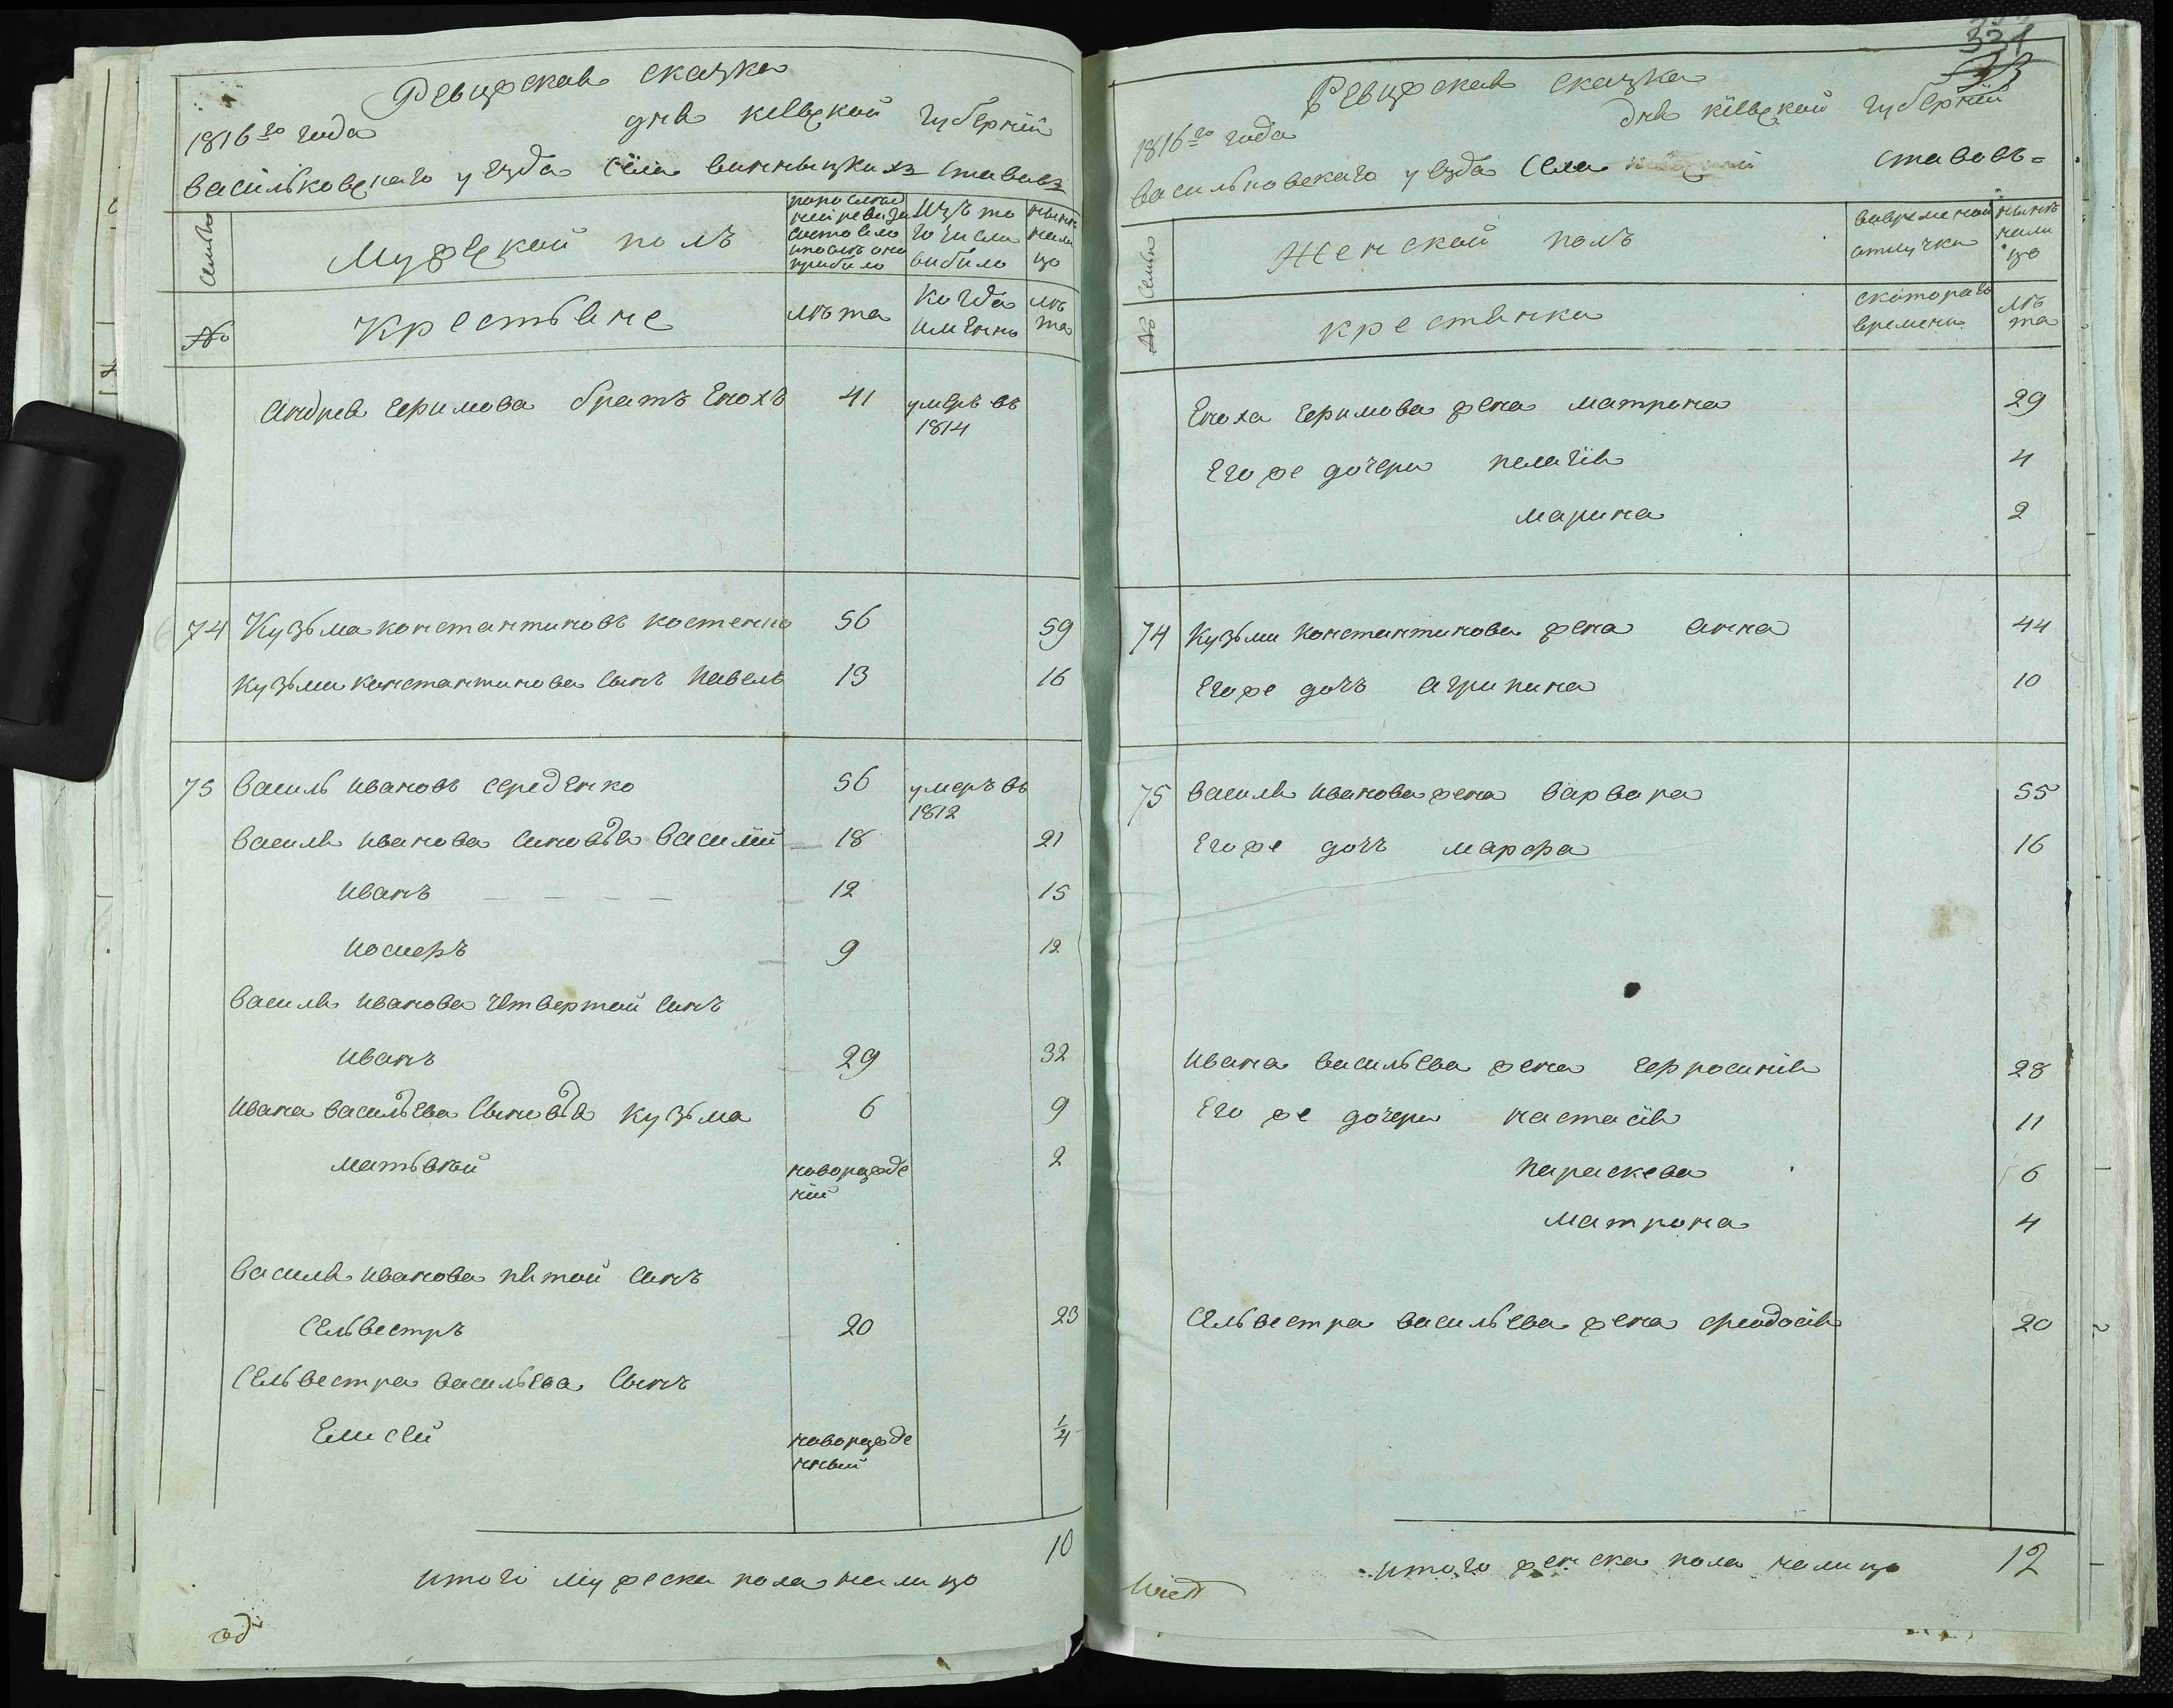 Ревизская сказка
1816го года дня кіевской губерніи
васильковскаго уезда села винницкихъ ставовъ
Семьи
Мужеской полъ
попослед
ней ревизи
состояло
ипосле оно
прибыло
Изъ то
го числа
выбыло
ныне
нали
цо
№
Крестьяне
лѣта
Когда
именно
лѣ
та
андрея ефимова братъ Енохъ 41 умеръ въ
1814
74 Кузьма константиновъ костенко 56 59
кузьми константинова сынъ павелъ 13 16
75 василь ивановъ середенко 56 умеръ въ
1812
василя иванова синовья василій 18 21
иванъ 12 15
иосифъ 9 12
василя иванова четвертой синъ
иванъ 29 32
ивана васильева сыновья кузьма 6 9
матьвей новорожде
ній 2
василя иванова пятой синъ
сельвестръ 20 23
сельвестра васильева сынъ
Елисей новорожде
нный 1/4
10
итого мужеска пола налицо
331
33
Ревизская сказка
1816го года дня кіевской губерніи
васильковскаго уезда села ставовъ
Семьи
Женской полъ
вовременой
отлучки
ныне
нали
цо
№
крестянки
скотораго
времени
лѣ
та
Еноха ефимова жена матрона 29
Его же дочери пелагія 4
марина 2
74 кузьми константинова жена анна 44
Его же дочь агрипина 10
75 василя иванова жена варвара 55
Его же дочь марфа 16
ивана васильева жена ефросинія 28
Его же дочери настасія 11
параскева 6
матрона 4
сельвестра васильева жена феодосія 20
итого женска пола налицо 12